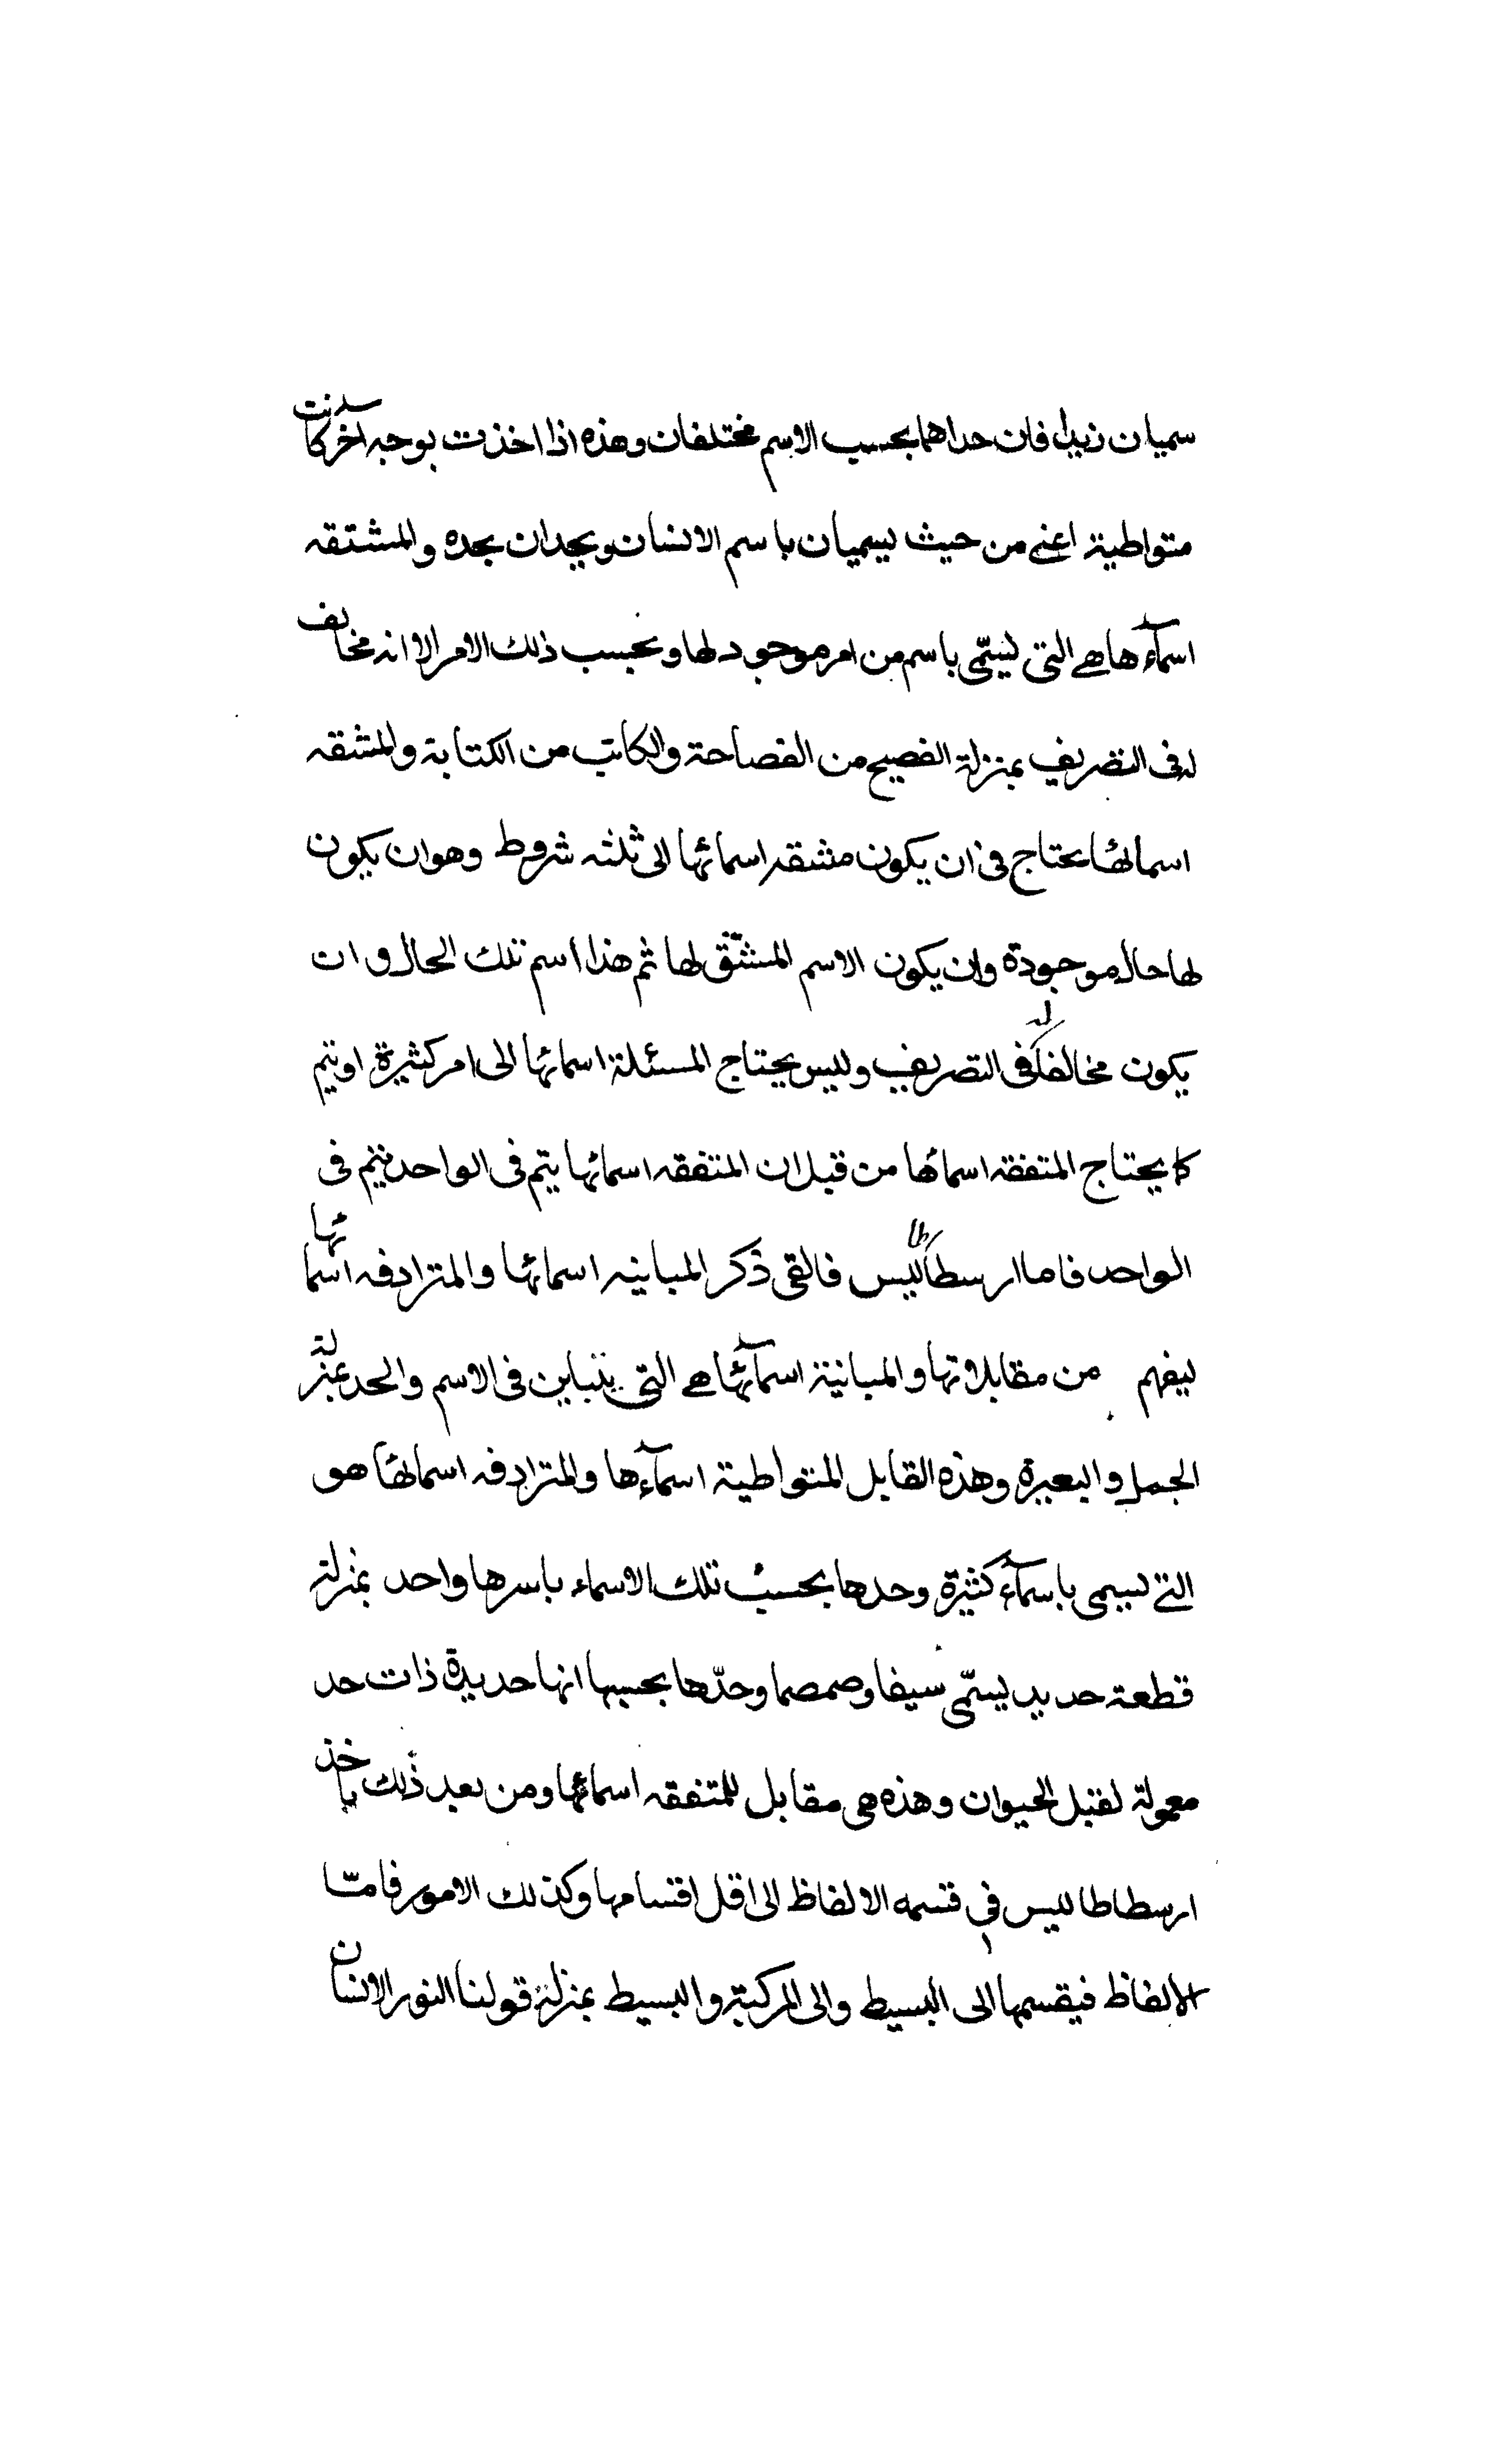 سميان زيدا فان حداهما بحسب الاسم مختلفان وهذه اذا اخذت بوجه اخر كانت
متواطية اعنى من حيث يسميان باسم الانسان ويحدان بحده والمشتقه
اسمآءها هى التى يسمّى باسم من امر موجود لها وبحسب ذلك الامر الا انه مخالف
له فى التصريف بمنزلة الفصيح من الفصاحة والكاتب من الكتابة والمشقه
اسمائها يحتاج فى ان يكون مشقه اسمائها الى ثلثه شروط وهو ان يكون
لها حال موجودة وان يكون الاسم المشتّق لها ثم هذا اسم تلك الحال وان
يكون مخالفا له فى التصريف وليس يحتاج المسئلة اسمائها الى امر كثيرة او يتم
كا يحتاج المتفقه اسمائها من قبل ان المتفقه اسمائها يتم فى الواحد يتم فى
الواحد فاما ارسطاطاليس فالقى ذكر المباينه اسمائها والمترادفه اسمائها
ليفهم من مقابلاتها والمباينة اسمآئها هى التى يتباين فى الاسم والحد بمنزلة
الجمل والبعيرة وهذه القابل المتواطية اسمآءها والمترادفه اسمائها هو
التى تسمى باسمآء كثيرة وحدها بحسب تلك الاسماء باسرها واحد بمنزلة
قطعة حديد يسمّى سيفا وصمصما وحدّها بحسبها انها حديدة ذات حد
معمولة لقتل الحيوان وهذه هى مقابل للمتفقه اسمائها ومن بعد ذلك ياخذ
ارسطاطاليس فى قسمه الالفاظ الى اقل اقسامها وكذلك الامور فامّا
الالفاظ فيقسمها الى البسيط والى المركبة والبسيط بمنزلة قولنا النور الانسان